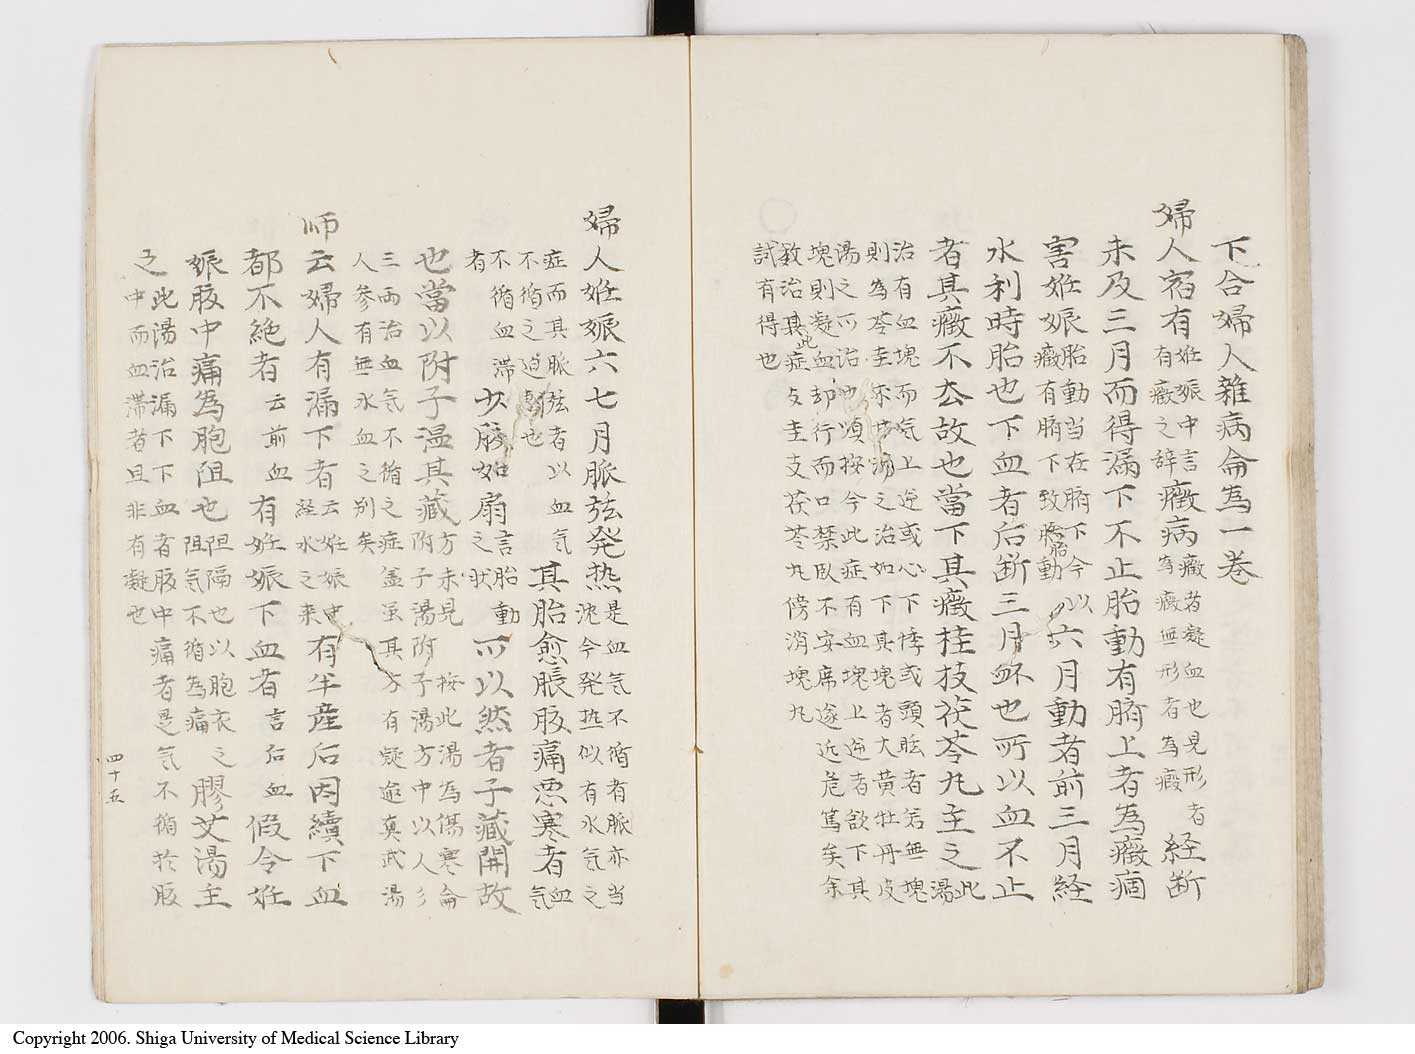 下合婦人雜病侖為一卷
婦人宿有妊娠中言有癥之辞癥病癥者凝血也見形者為癥無形者為瘕経断
未及三月而得漏下不止胎動有臍上者為癥痼
害妊娠胎動当在臍下今以癥有臍下致胎動六月動者前三月経
水利時胎也下血者后断三月衃也所以血不止
者其癥不去故也當下其癥桂枝茯苓丸主之此湯
治有血塊而気上逆或心下悸或頭眩者若無塊
則為苓圭朮甘湯之治如下真塊者大黄牡丹皮
湯之所治也須按今此症有血塊上逆者欲下其
塊則凝血却行而口禁臥不安席遂近危篤矣余
数治其此症攴圭支茯苓丸傍消塊丸
試有得也
婦人妊娠六七月脈弦発热是血気不循者脈亦当沈今発热似有水気之
症而其脈弦者以血気不循之迫動也其胎愈脹腹痛悪寒者血気
不循血滞者少腹如扇言胎動之状所以然者子藏開故
也當以附子温其藏方未見附子湯附子湯方中以人彡按此湯為傷寒侖
三両治血気不循之症盖虽其方有疑逾真武湯
人參有無水血之別矣
师云婦人有漏下者云妊娠中経水之来有半産后因續下血
都不絶者云前血有妊娠下血者言后血假令妊
娠腹中痛為胞阻也阻隔也以胞衣之阻気不循為痛膠艾湯主
之此湯治漏下下血者腹中痛者是気不循於腹
中而血滞者且非有凝也
四十五
Copyright 2006. Shiga University of Medical Science Library